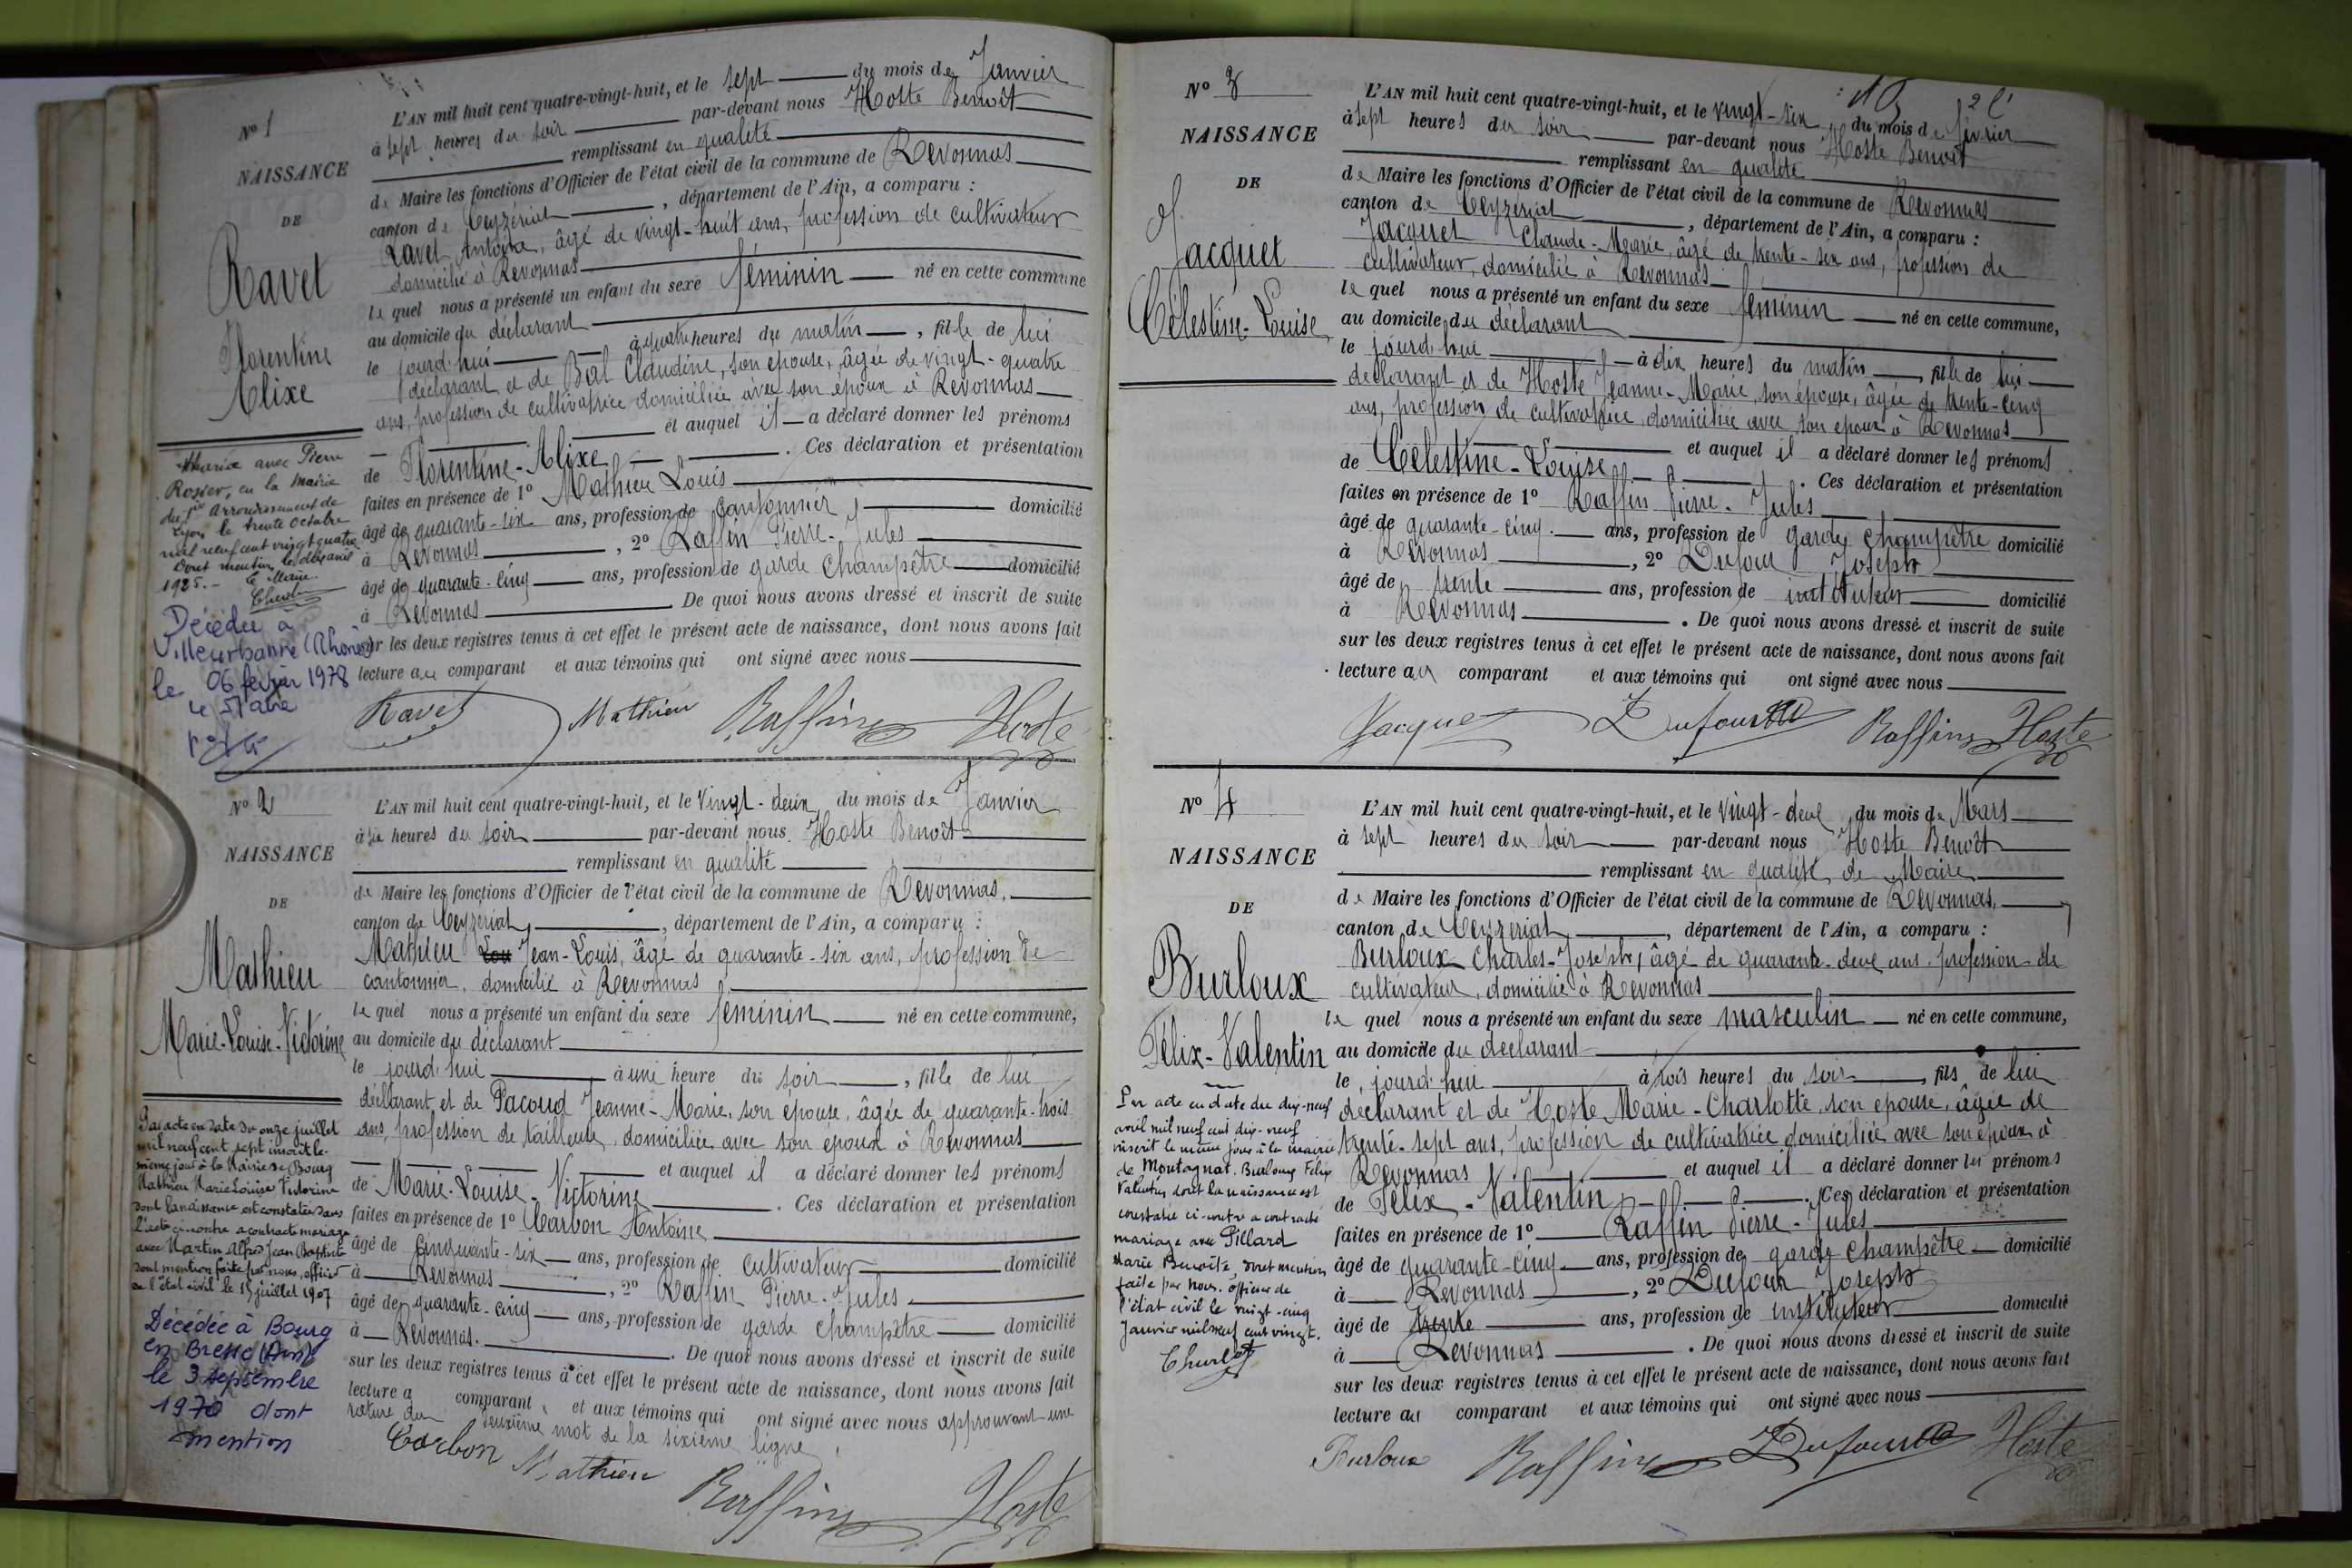 N° 1
NAISSANCE
DE
Ravet
Florentine
Alixe
Mariée avec Pierre
Rosier, en la Mairie
du 1er arrondissement de
Lyon le trente Octobre
mil neuf cent vingt quatre
Dont mention, le dix avril
1925.- Le Maire
Décédée à
Villeurbanne (Rhône)
le 06 février 1978
le Maire
L'AN mil huit cent quatre-vingt-huit, et le sept du mois de Janvier
à sept heures du soir par-devant nous Hoste Benoît
remplissant en qualité
de Maire les fonctions d'Officier de l'état civil de la commune de Revonnas
canton de Ceyzériat, département de l'Ain, a comparu :
Ravet Antoine, âgé de vingt-huit ans, profession de cultivateur
domicilié à Revonnas
le quel nous a présenté un enfant du sexe féminin né en cette commune
au domicile du déclarant
le jourd'hui à quatre heures du matin, fille de lui
déclarant et de Bal Claudine, son épouse, âgée de vingt-quatre
ans, profession de cultivatrice domiciliée avec son époux à Revonnas
et auquel il a déclaré donner les prénoms
de Florentine-Alixe. Ces déclaration et présentation
faites en présence de 1° Mathieu Louis
âgé de quarante-six ans, profession de cantonnier domicilié
à Revonnas, 2° Raffin Pierre-Jules
âgé de quarante-cinq ans, profession de garde champêtre domicilié
à Revonnas De quoi nous avons dressé et inscrit de suite
sur les deux registres tenus à cet effet le présent acte de naissance, dont nous avons fait
lecture au comparant et aux témoins qui ont signé avec nous
Ravet Mathieu Raffin Hoste
N° 2
NAISSANCE
DE
Mathieu
Marie-Louise-Victorine
Par acte en date du onze juillet
mil neuf cent sept inscrit le
même jour à la Mairie de Bourg
Mathieu Marie Louise Victorine
dont la naissance est constatée dans
l'acte ci-contre a contracté mariage
avec Martin Alfred Jean Baptiste
dont mention faite par nous, officier
de l'état civil le 15 juillet 1907
Décédée à Bourg
en Bresse (Ain)
le 3 septembre
1970 dont
mention
L'AN mil huit cent quatre-vingt-huit, et le vingt-deux du mois de Janvier
à six heures du soir par-devant nous Hoste Benoît
remplissant en qualité
de Maire les fonctions d'Officier de l'état civil de la commune de Revonnas,
canton de Ceyzériat, département de l'Ain, a comparu :
Mathieu Lou Jean-Louis, âgé de quarante-six ans, profession de
cantonnier, domicilié à Revonnas
le quel nous a présenté un enfant du sexe féminin né en cette commune,
au domicile du déclarant
le jourd'hui à une heure du soir, fille de lui
déclarant et de Pacoud Jeanne-Marie, son épouse, âgée de quarante-trois
ans, profession de tailleuse, domiciliée avec son époux à Revonnas
et auquel il a déclaré donner les prénoms
de Marie-Louise-Victorine. Ces déclaration et présentation
faites en présence de 1° Carbon Antoine
âgé de cinquante-six ans, profession de cultivateur domicilié
à Revonnas, 2° Raffin Pierre-Jules
âgé de quarante-cinq ans, profession de garde champêtre domicilié
à Revonnas. De quoi nous avons dressé et inscrit de suite
sur les deux registres tenus à cet effet le présent acte de naissance, dont nous avons fait
lecture a comparant, et aux témoins qui ont signé avec nous approuvant une
rature du deuxième mot de la sixième ligne
Carbon Mathieu Raffin Hoste
N° 3
NAISSANCE
DE
Jacquet
Célestine-Louise
L'AN mil huit cent quatre-vingt-huit, et le vingt-six du mois de février
à sept heures du soir par-devant nous Hoste Benoît
remplissant en qualité
de Maire les fonctions d'Officier de l'état civil de la commune de Revonnas
canton de Ceyzériat, département de l'Ain, a comparu :
Jacquet Claude-Marie, âgé de trente-six ans, profession de
cultivateur, domicilié à Revonnas
le quel nous a présenté un enfant du sexe féminin né en cette commune,
au domicile du déclarant
le jourd'hui à dix heures du matin, fille de lui
déclarant et de Hoste Jeanne-Marie, son épouse, âgée de trente-cinq
ans, profession de cultivatrice, domiciliée avec son époux à Revonnas
et auquel il a déclaré donner les prénoms
de Célestine-Louise. Ces déclaration et présentation
faites en présence de 1° Raffin Pierre-Jules
âgé de quarante-cinq ans, profession de garde champêtre domicilié
à Revonnas, 2° Dufour Joseph
âgé de trente ans, profession de instituteur domicilié
à Revonnas. De quoi nous avons dressé et inscrit de suite
sur les deux registres tenus à cet effet le présent acte de naissance, dont nous avons fait
lecture au comparant et aux témoins qui ont signé avec nous
Jacquet Dufour Raffin Hoste
N° 4
NAISSANCE
DE
Burloux
Félix-Valentin
Par acte en date du dix-neuf
avril mil neuf cent dix-neuf
inscrit le même jour à la mairie
de Montagnat. Burloux Félix
Valentin dont la naissance est
constatée ci-contre a contracté
mariage avec Pillard
Marie Benoîte, dont mention
faite par nous. officier de
l'état civil le vingt-cinq
Janvier mil neuf cent vingt.
L'AN mil huit cent quatre-vingt-huit, et le vingt-deux du mois de Mars
à sept heures du soir par-devant nous Hoste Benoît
remplissant en qualité de Maire
de Maire les fonctions d'Officier de l'état civil de la commune de Revonnas,
canton de Ceyzériat, département de l'Ain, a comparu :
Burloux Charles-Joseph, âgé de quarante-deux ans profession de
cultivateur, domicilié à Revonnas
le quel nous a présenté un enfant du sexe masculin né en cette commune,
au domicile du déclarant
le jourd'hui à trois heures du soir, fils de lui
déclarant et de Hoste Marie-Charlotte, son épouse, âgée de
trente-sept ans, profession de cultivatrice domiciliée avec son époux à
Revonnas et auquel il a déclaré donner les prénoms
de Félix-Valentin. Ces déclaration et présentation
faites en présence de 1° Raffin Pierre-Jules
âgé de quarante-cinq ans, profession de garde champêtre domicilié
à Revonnas, 2° Dufour Joseph
âgé de trente ans, profession de instituteur domicilié
à Revonnas. De quoi nous avons dressé et inscrit de suite
sur les deux registres tenus à cet effet le présent acte de naissance, dont nous avons fait
lecture au comparant et aux témoins qui ont signé avec nous
Burloux Raffin Dufour Hoste